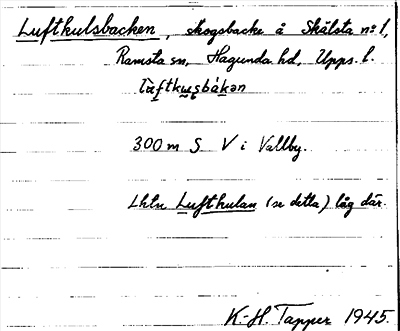 Luftkulsbacken, skogsbacke å Skälsta nr 1,
Ramsta sn, Hagunda hd, Upps. l.
300 m S V i Vallby.
Lhtn Luftkulan (se detta) låg där.
K.-H. Tapper 1945.